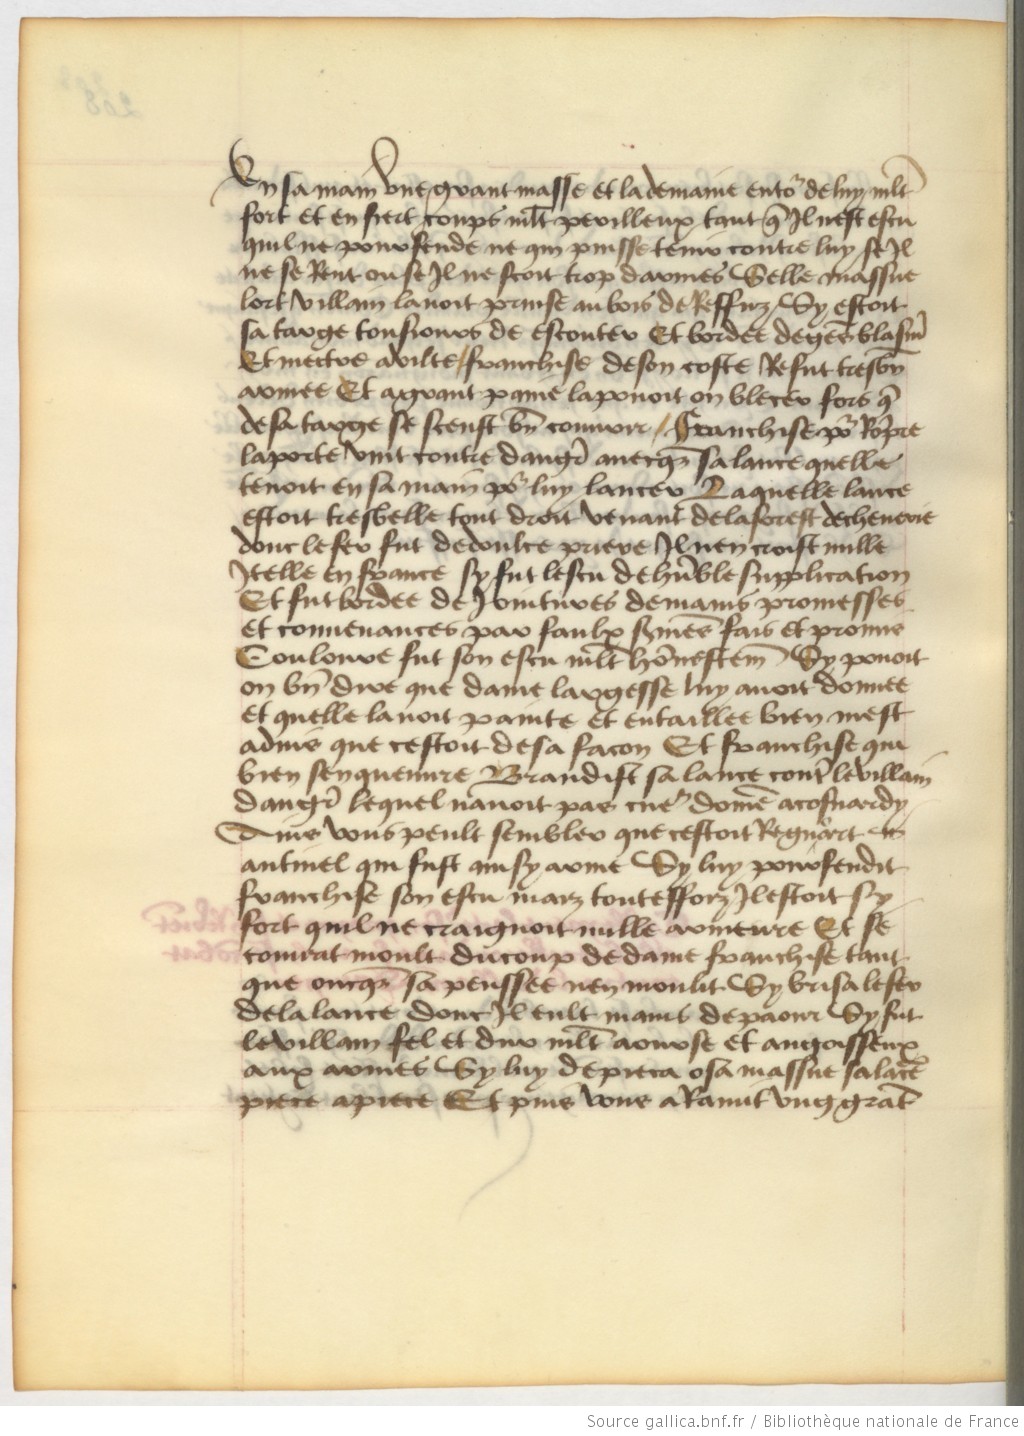 En sa main une grant masse et la demaine entor de luy mlt
fort et en fiert coups mlt perilleux tant q Il nest escu
quil ne pourfende ne qui puisse tenir contre luy se Il
ne se Rent ou se Il ne scoit trop darmes Celle massue
lort villain lavoit prinse au bois de Reffuz Sy estoit
sa targe tousiours de escouter Et bordee de gens blasm
Et mectre a vilte / franchise de son coste Refut tresbn
armee Et a grant paine la pouoit on blecer fors q
de sa targe se scenst bn couurir / Franchise por Ropre
la porte vint contre dangr auecqz sa lance quelle
tenoit en sa main por luy lancer Laquelle lance
estoit tresbelle tout droit venant de la forest de cheuerie
donc le fer fut de doulce priere Il nen croist nulle
Itelle en france sy fut lescu de huble supplication
Et fut bordee de Iointures de mains promesses
et conuenances par faulx sermes fais et promis
Couloure fut son escu mlt honestem Sy pouoit
on bn dire que dame largesse luy auoit donnee
et quelle lauoit painte et entaillee bien mest
aduis que cestoit de sa facon Et franchise qui
bien sen queuure Brandist sa lance contr le villain
dangr lequel nauoit pas cuer dome acofuardy
Amis vous peult sembler que cestoit Regnoart
au tinel qui fust ainsy arme Sy luy pourfendit
franchise son escu maiz touteffoiz Il estoit sy
fort quil ne craignoit nulle armeure Et se
couurat moult du coup de dame franchise tant
que oncqz sa penssee nen moulit Sy brisa le fer
de la lance donc Il eult mains de paour Sy fut
le villain fel et dur mlt aourse et angoisseux
aux armes Sy luy depieca o sa massue sa lace
piece a piece Et puis vous a Ramit ung grat